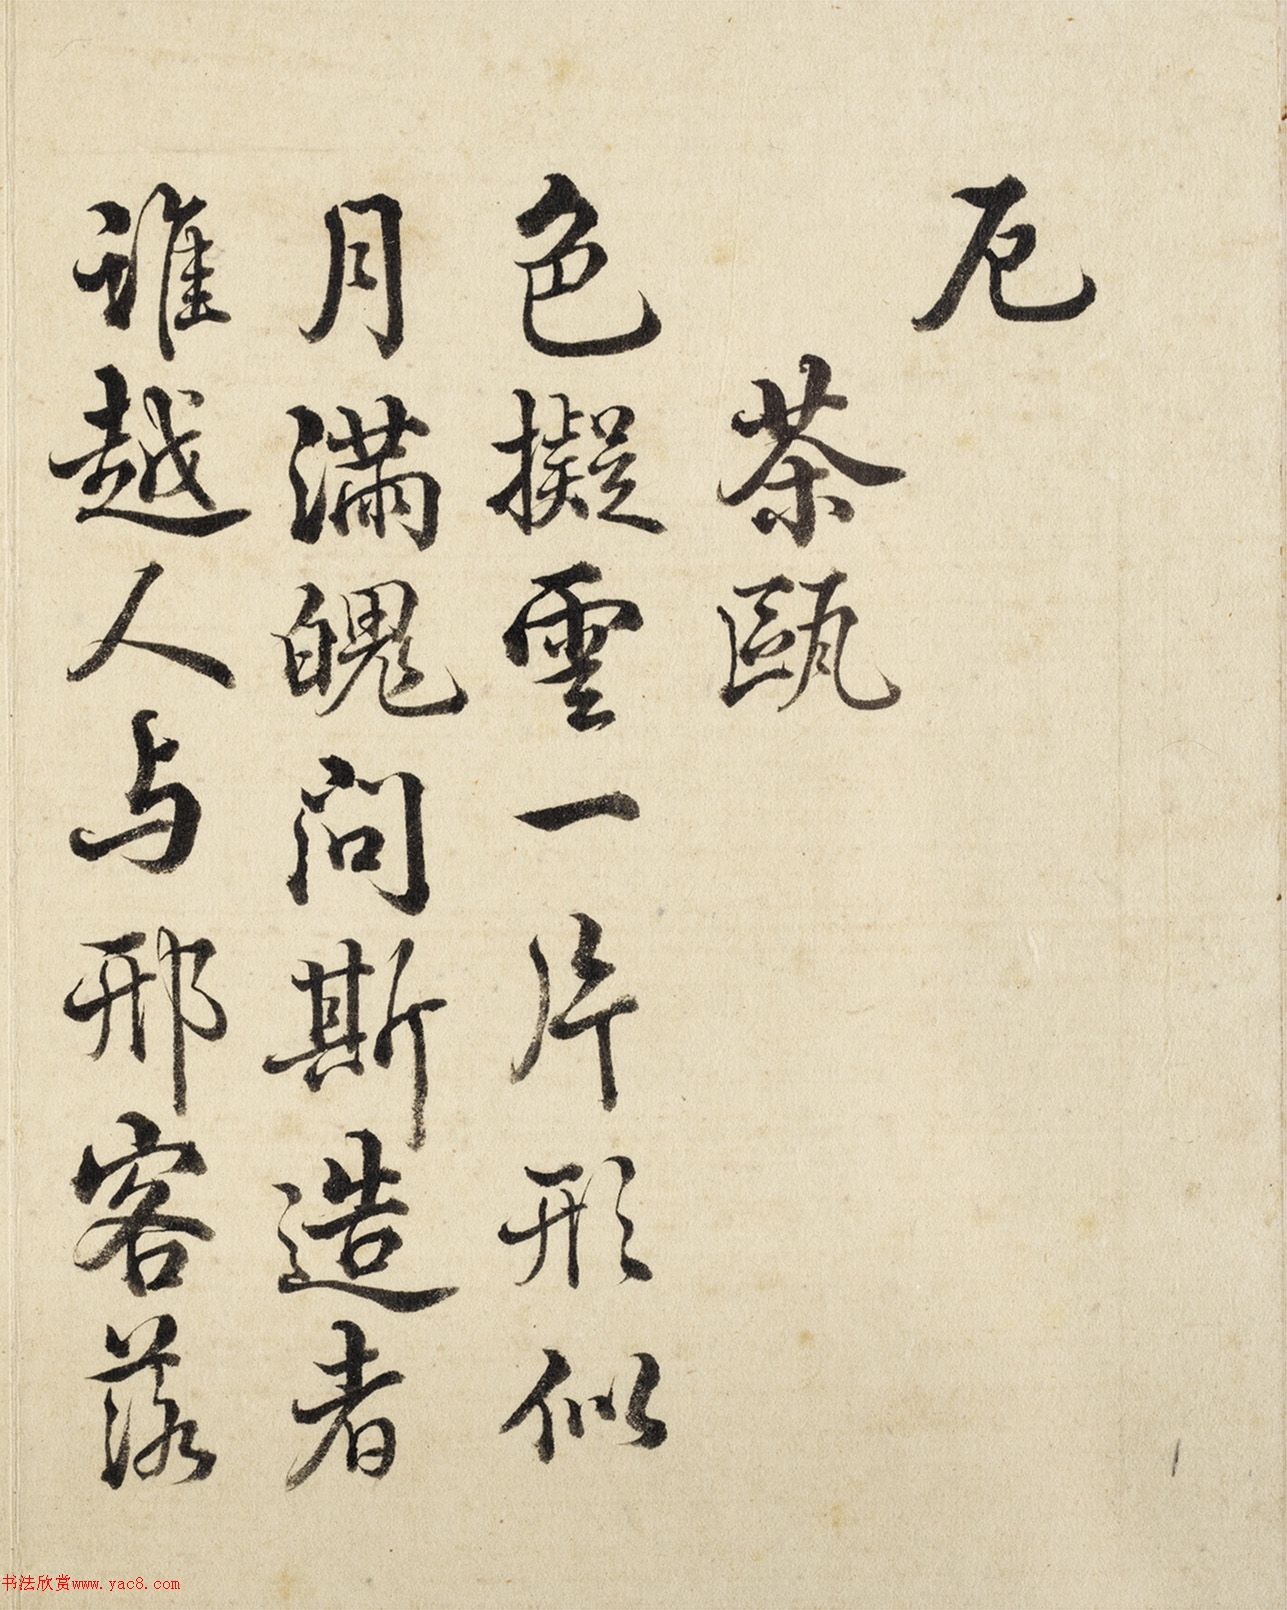 卮
茶甌
色擬雲一片形似
月滿魄问斯造者
誰越人与邢客落
书法欣赏www.yac8.com